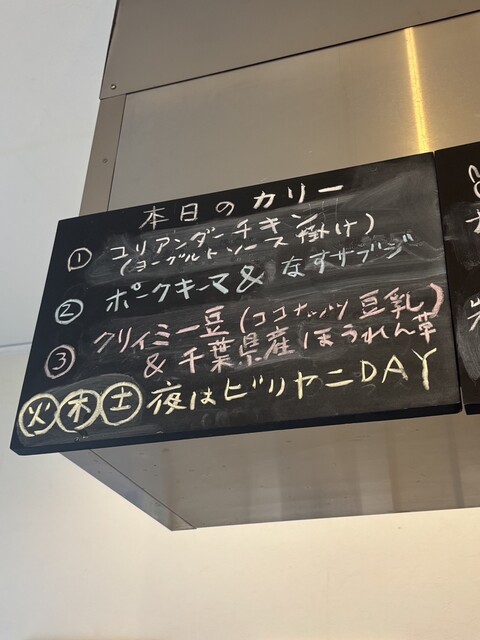 本日のカリー
① コリアンダーチキン
(ヨーグルトソース掛け)
② ポークキーマ& なすサブジ
③ クリィミー豆(ココナッツ豆乳)
& 千葉県産ほうれん草
火木土 夜はビリヤニDAY